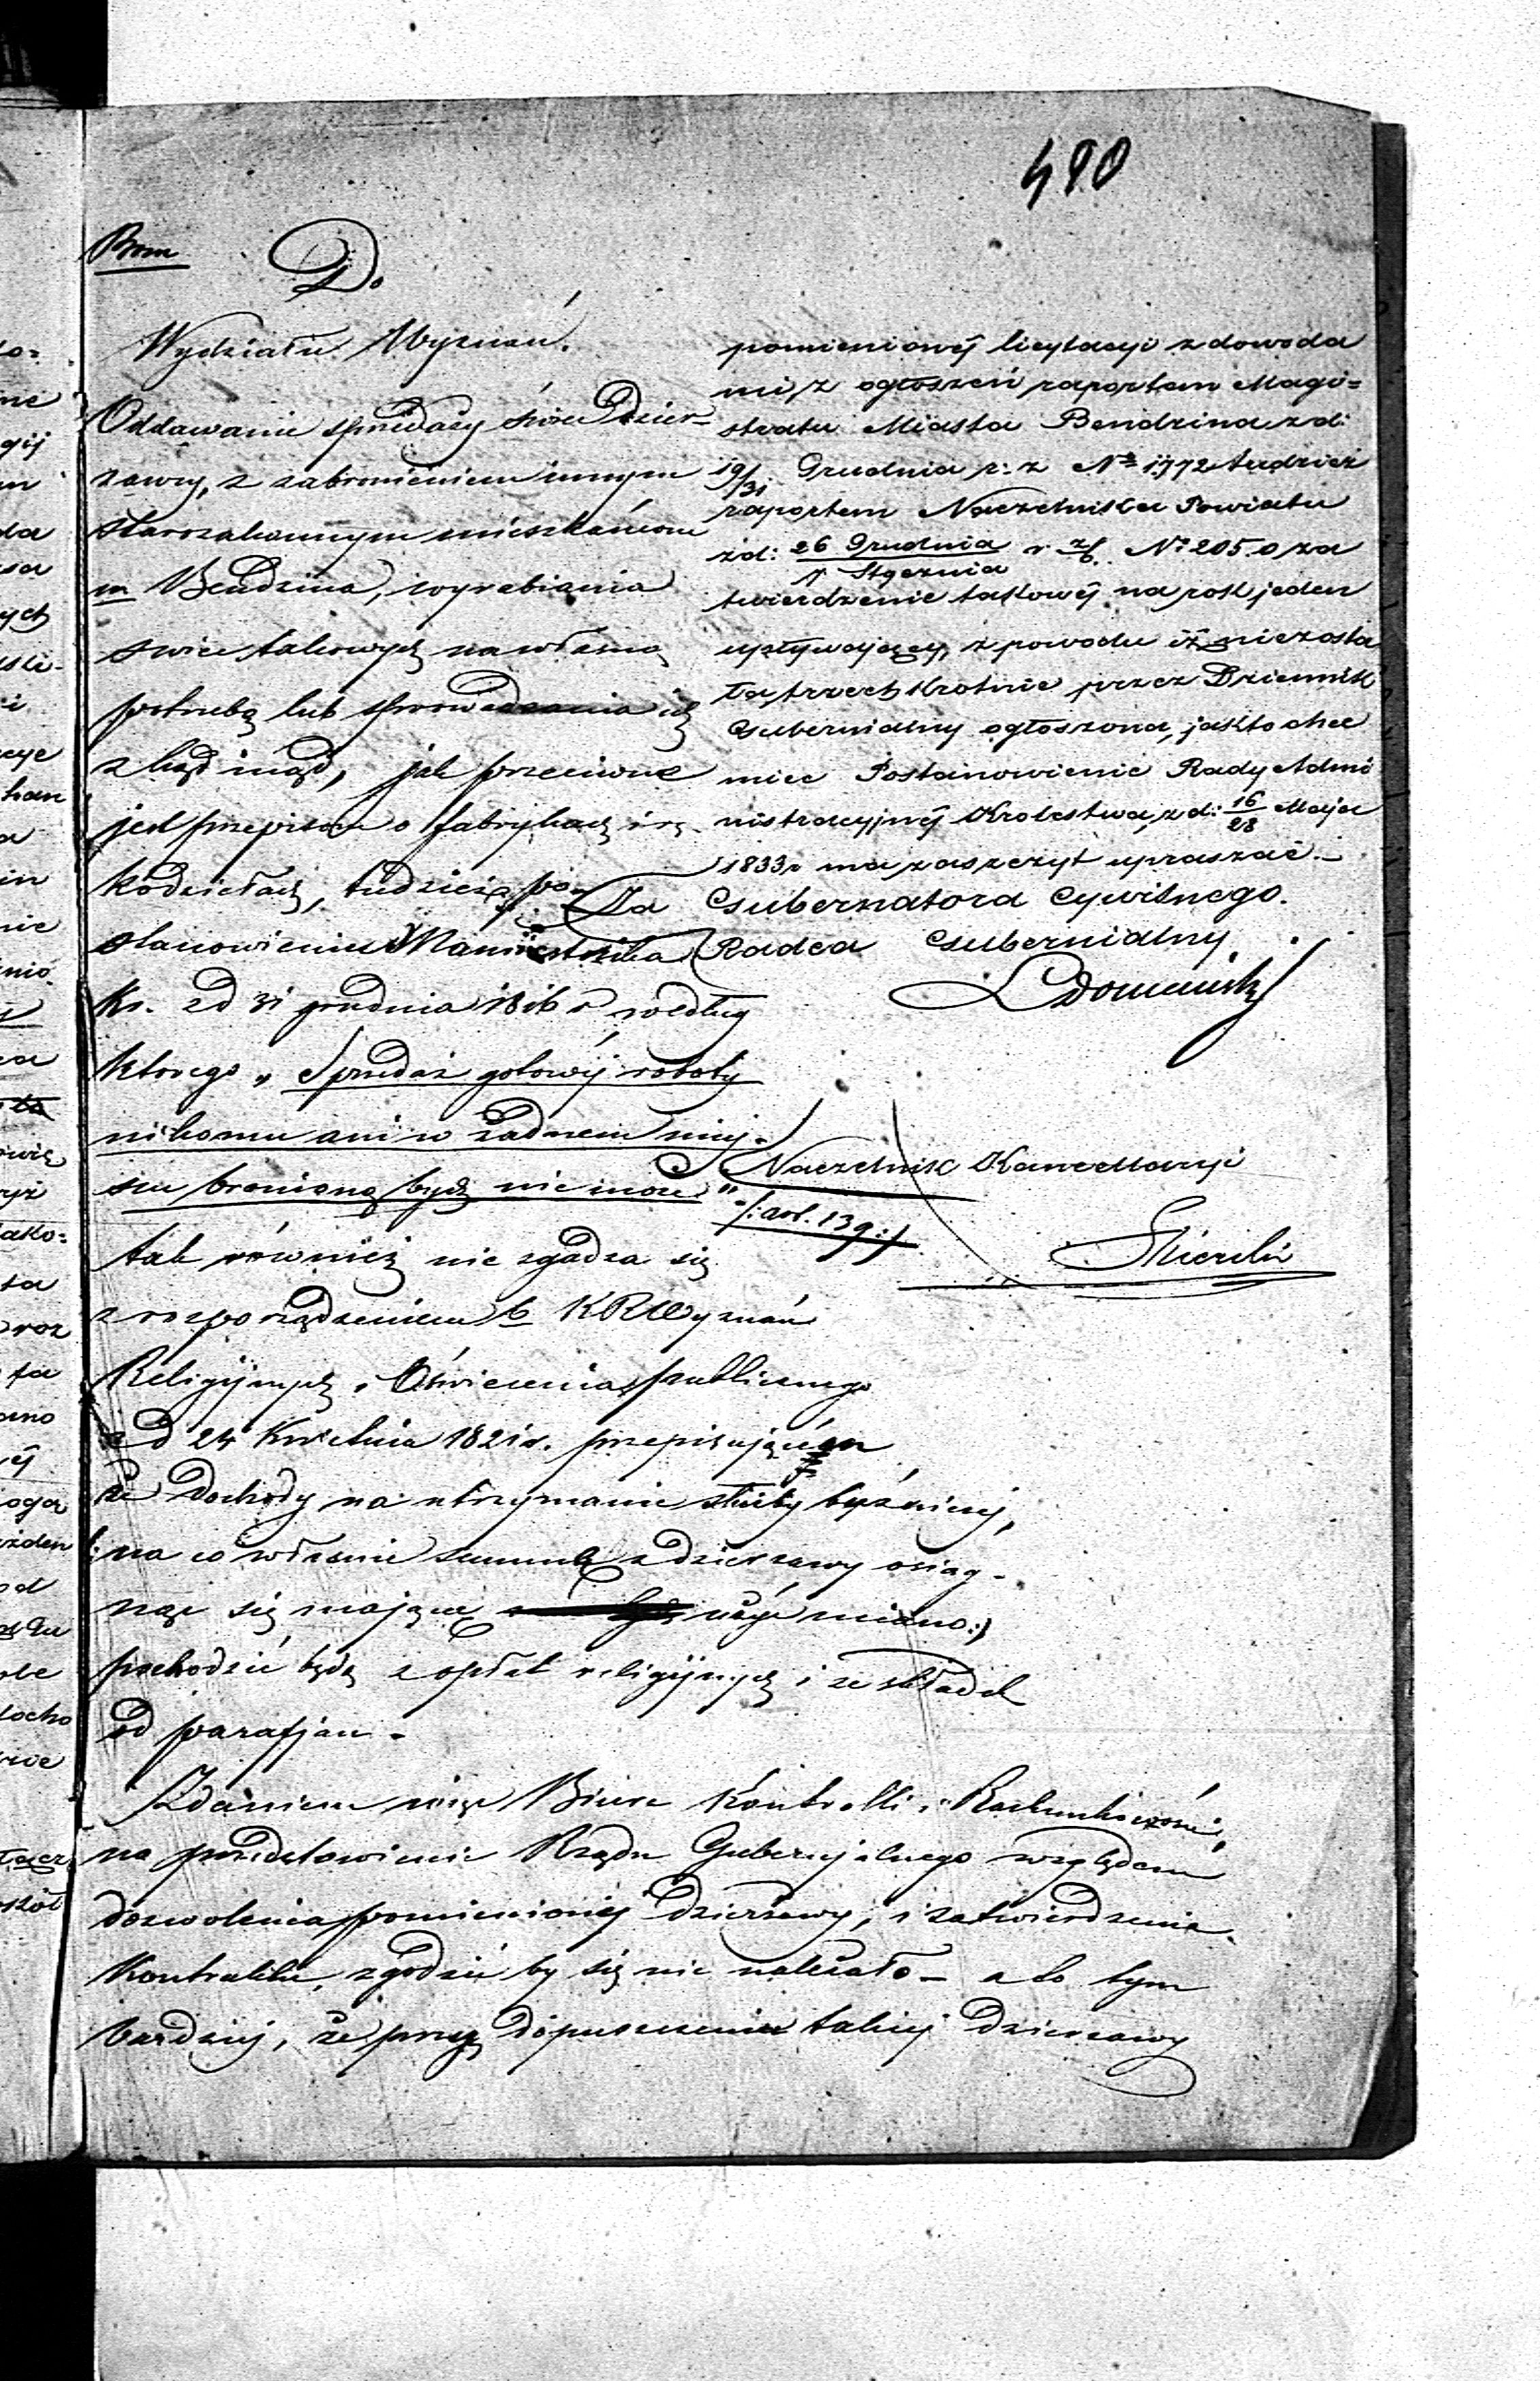 480
Bom
Do
Wydziału Wyznań.
Oddawanie sprzedaży świec Dzier-
zawcy, z zabronieniem innym
starozakonnym mieszkańcom
m Bendzina, wyrabiania
swiec takowych na własną
potrzebę lub sprowadzania ich
z kąd inąd, jak przeciwne
jest przepisom o fabrykach i rę-
kodziełach, tudzież po-
stanowieniu Namiestnika
Kr. z d 31 grudnia 1816 r według
ktorego „ Sprzedaż gotowéj roboty
nikomu ani w żadnem miej-
scu bronioną bydź nie może" /:art. 139:/
tak również nie zgadza się
z rozporządzeniem b KRWyznań
Religijnych i Oświecenia publicznego
z d 24 Kwietnia 1821 r. przepisującém
że dochody na utrzymanie służby bożniczej,
/: na co właśnie summę z dzierzawy osiąg-
nąć się mającą użyć miano:/
pochodzić będą z opłat religijnych i ze składek
od parafjan.-
Zdaniem więc Biura Kontrolli i Rachunkowości,
na przedstawienie Rządu Gubernjalnego względem
dozwolenia pomienionéj Dzierżawy, i zatwierdzenia
Kontraktu, zgodzić by się nie należało - a to tym
bardziej, że przy dopuszczeniu takiej Dzierzawy
pomienionéj licytacyi z dowoda
mi, z ogłoszeń raportem Magi=
stratu Miasta Bendzina z d:
19/31 Grudnia r: z Nº 1772 tudzież
raportem Naczelnika Powiatu
z d: 26 Grudnia / 7 Stycznia r z/b Nº 205. o za
twierdzenie takowéj na rok jeden
upływający, z powodu iż niezosta
ła trzechkrotnie przez Dziennik
Gubernialny ogłoszona, jak to chce
miec Postanowienie Rady Admi
nistracyjnéj Krolestwa, z d: 16/28 Maja
1833 r ma zaszczyt upraszać.-
Za Gubernatora Cywilnego.
Radca Gubernialny
Naczelnik Kancellaryi